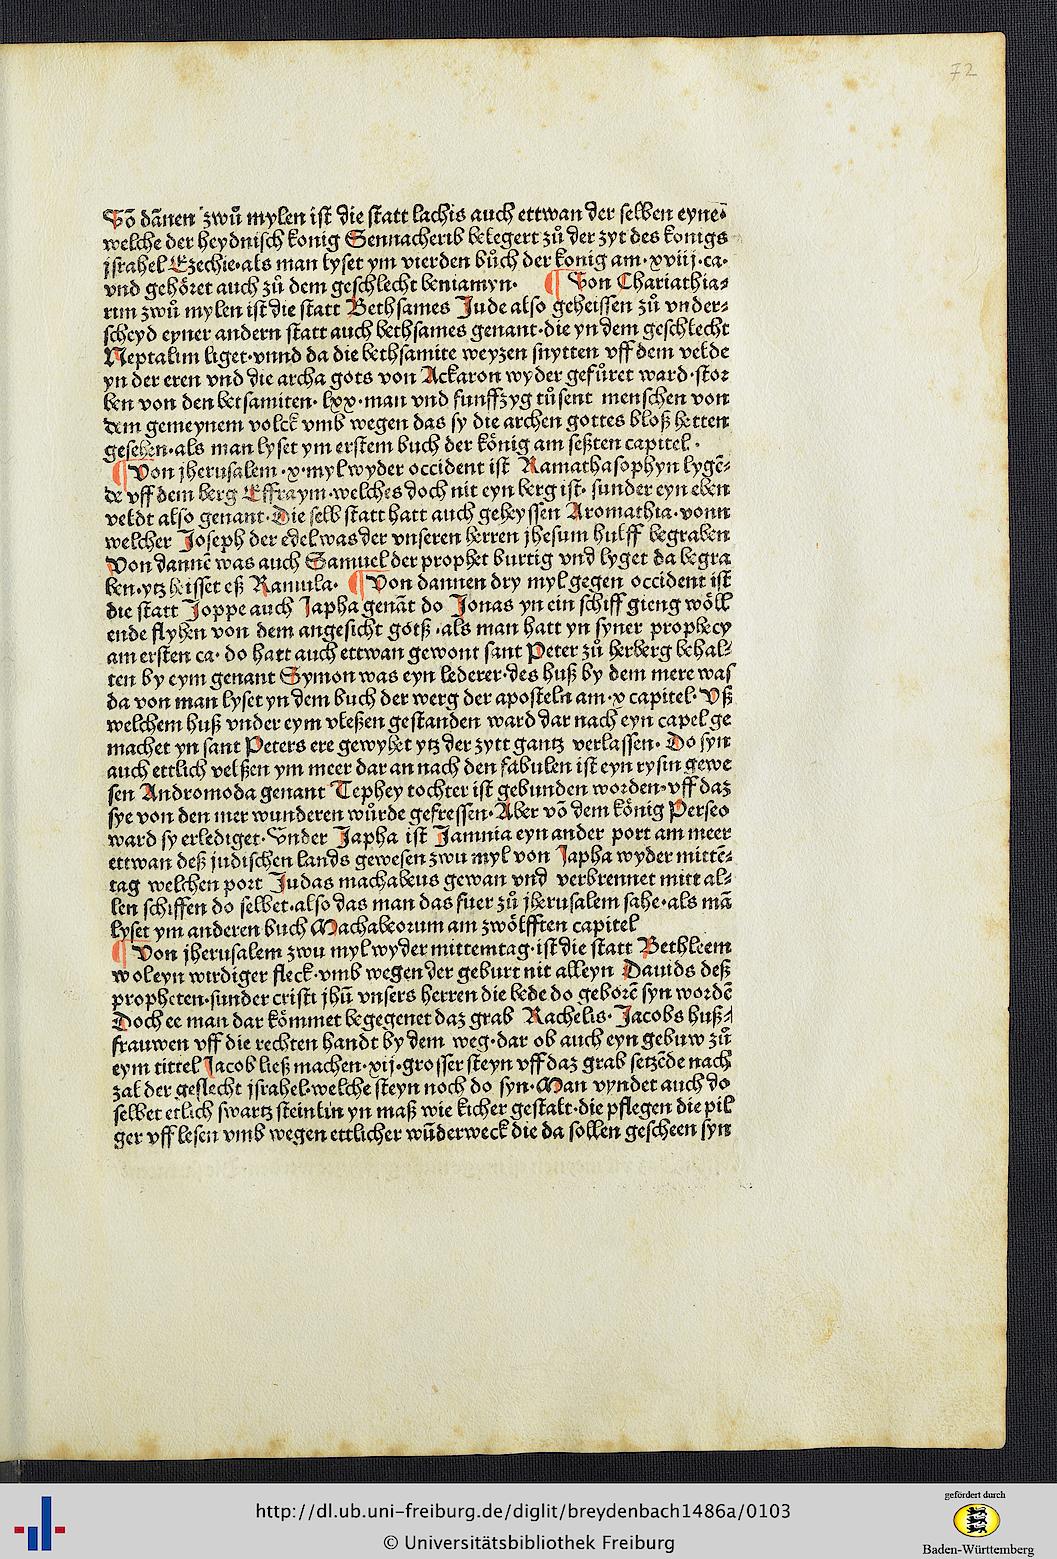 72
Võ dãnen zwů mylen ist die statt lachis auch ettwan der selben eyne·
welche der heydnisch konig Sennacherib belegert zů der zyt des konigs
jsrahel Ezechie·als man lyset ym vierden bůch der konig am·xviij·ca·
vnd gehöret auch zů dem geschlecht beniamyn· ¶ Von Chariathia⸗
rim zwů mylen ist die statt Bethsames Jude also geheissen zů vnder⸗
scheyd eyner andern statt auch bethsames genant·die yn dem geschlecht
Neptalim liget·vnnd da die bethsamite weyzen snytten vff dem velde
yn der eren vnd die archa gots von Ackaron wyder gefůret ward·stor
ben von den betsamiten· lxx·man vnd funffzyg tůsent menschen von
dem gemeynem volck vmb wegen das sy die archen gottes bloß hetten
gesehen·als man lyset ym erstem buch der könig am seßten capitel·
¶ Von jherusalem·x·myl wyder occident ist Ramathasophyn lygē⸗
de vff dem berg Effraym·welches doch nit eyn berg ist· sunder eyn eben
veldt also genant·Die selb statt hatt auch geheyssen Aromathia·vonn
welcher Joseph der edel was der vnseren herren jhesum hulff begraben
Von dannē was auch Samuel der prophet burtig vnd lyget da begra
ben·ytz heisset eß Ramula· ¶ Von dannen dry myl gegen occident ist
die statt Joppe auch Japha genāt do Jonas yn ein schiff gieng wöll
ende flyhen von dem angesicht gotß·als man hatt yn syner prophecy
am ersten ca· do hatt auch ettwan gewont sant Peter zů herberg behal⸗
ten by eym genant Symon was eyn lederer·des huß by dem mere was
da von man lyset yn dem buch der werg der aposteln am·x capitel· Vß
welchem huß vnder eym vleßen gestanden ward dar nach eyn capel ge
machet yn sant Peters ere gewyhet ytz der zytt gantz verlassen· Do syn
auch ettlich velßen ym meer dar an nach den fabulen ist eyn rysin gewe
sen Andromoda genant Tephey tochter ist gebunden worden·vff daz
sye von den mer wunderen wůrde gefressen·Aber võ dem könig Perseo
ward sy erlediget·Vnder Japha ist Jamnia eyn ander port am meer
ettwan deß judischen lands gewesen zwu myl von Japha wyder mittē⸗
tag welchen port Judas machabeus gewan vnd verbrennet mitt al⸗
len schiffen do selbet·also das man das fuer zů jherusalem sahe·als mā
lyset ym anderen buch Machabeorum am zwölfften capitel
¶ Von jherusalem zwu myl wyder mittemtag·ist die statt Bethleem
wol eyn wirdiger fleck·vmb wegen der geburt nit alleyn Dauids deß
propheten·sunder cristi jhū vnsers herren die bede do geborē syn wordē
Doch ee man dar kömmet begegenet daz grab Rachelis· Jacobs huß⸗
frauwen vff die rechten handt by dem weg·dar ob auch eyn gebuw zů
eym tittel Jacob ließ machen·xij·grosser steyn vff daz grab setzēde nach
zal der geslecht jsrahel·welche steyn noch do syn·Man vyndet auch do
selbet etlich swartz steinlin yn maß wie kicher gestalt·die pflegen die pil
ger vff lesen vmb wegen ettlicher wūderweck die da sollen gescheen syn
http://dl.ub.uni-freiburg.de/diglit/breydenbach1486a/0103
© Universitätsbibliothek Freiburg
gefördert durch
Baden-Württemberg